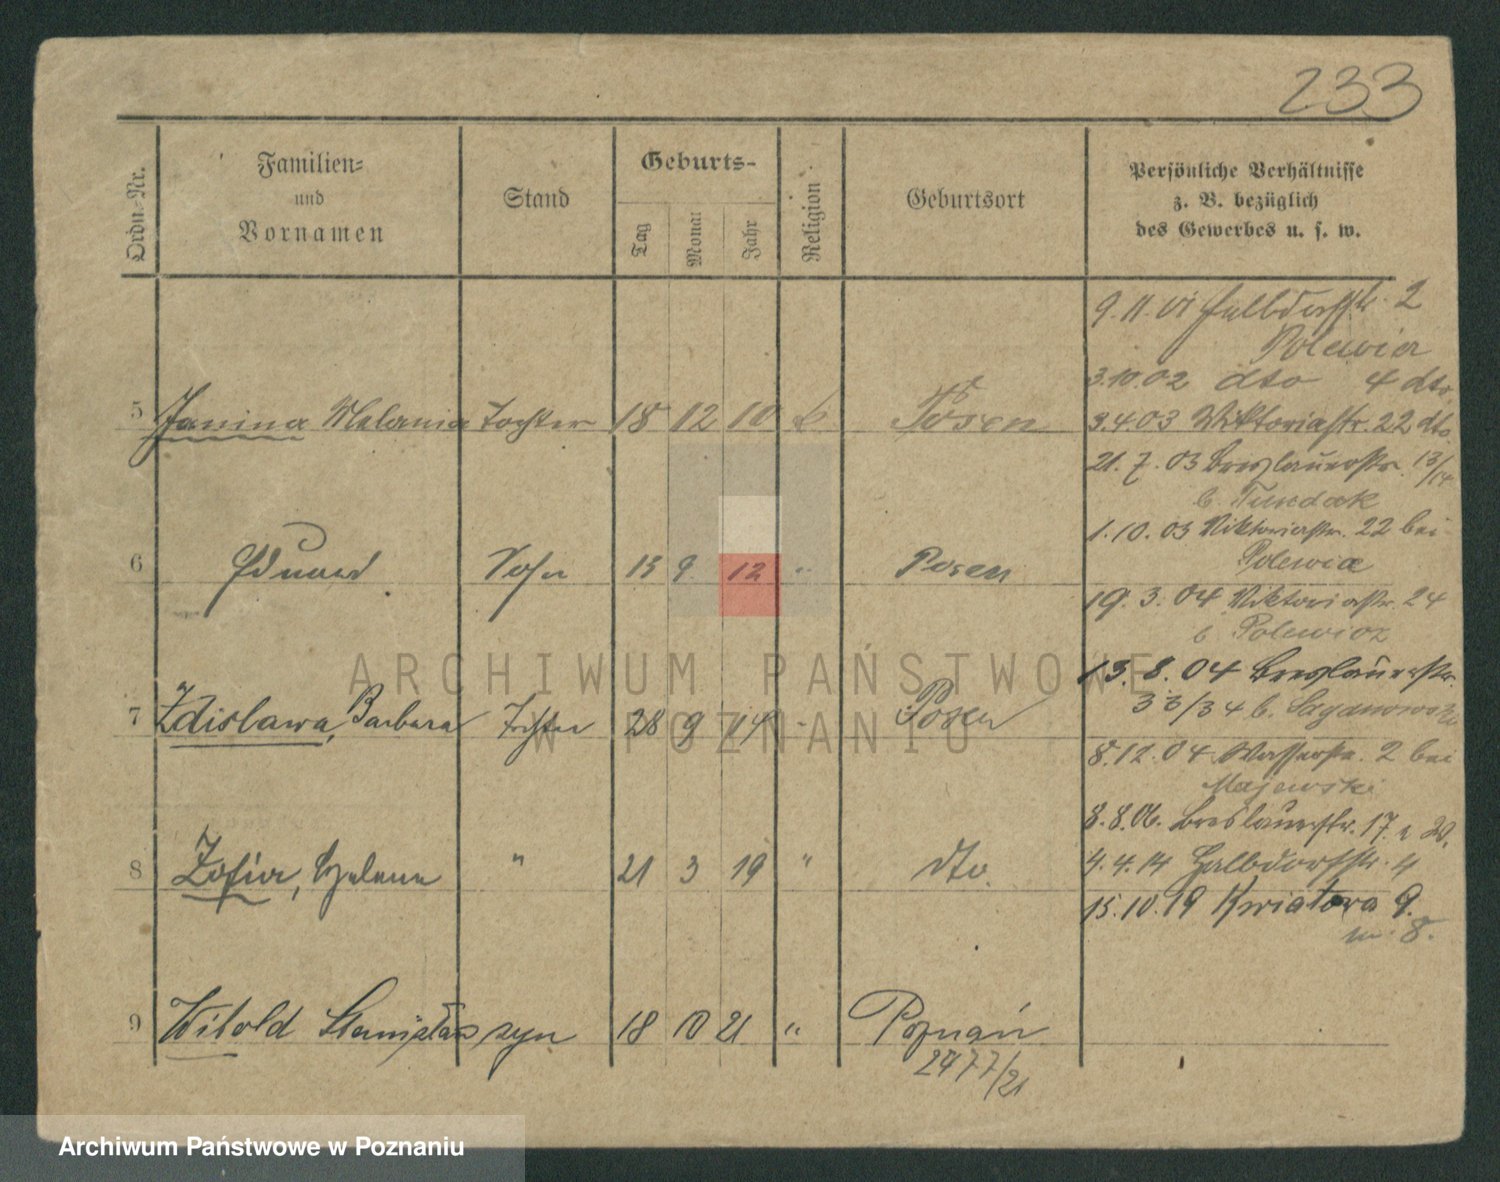 233
Ordn.-Nr.
Familien-
und
Vornamen
Stand
Geburts-
Tag
Monat
Jahr
Religion
Geburtsort
Persönliche Verhältnisse
z. B. bezüglich
des Gewerbes u. s. w.
5 Janina Melania Tochter 18 12 10 k Posen
6 Eduard Sohn 13 9 12 " Posen
7 Zdislawa, Barbara Tochter 28 9 14 " Posen
8 Zofia, Helene " 21 3 19 " dto.
9 Witold Stanisław syn 18 10 21 " Poznań
2477/21
9.11.01 Halbdorfstr. 2
Polewicz
3.10.02 dto 4 dto.
3.4.03 Viktoriastr. 22 dto.
21.7.03 Breslauerstr. 13/14
b.
1.10.03 Viktoriastr. 22 bei
Polewicz
19.3.04 Viktoriastr. 24
b Polewicz
13.8.04 Breslauerstr.
33/34 b.
8.12.04 Wasserstr. 2 bei
Majewski
8.8.06. Breslauerstr. 17.
4.4.14 Halbdorfstr. 4
15.10.19 Kwiatowa 9.
m. 8.
ARCHIWUM PAŃSTWOWE
W POZNANIU
Archiwum Państwowe w Poznaniu